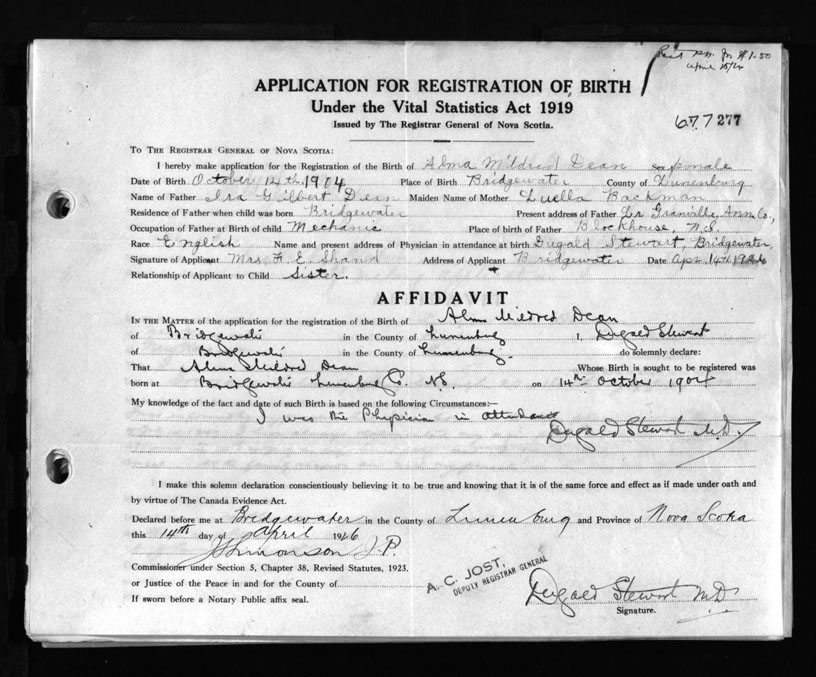 Paid
April
for $1.50
APPLICATION FOR REGISTRATION OF BIRTH
Under the Vital Statistics Act 1919
Issued by The Registrar General of Nova Scotia.
677 277
To The Registrar General of Nova Scotia:
I hereby make application for the Registration of the Birth of Alma Mildred Dean Sex female
Date of Birth October 14th, 1904 Place of Birth Bridgewater County of Lunenburg
Name of Father Ira Gilbert Dean Maiden Name of Mother Luella Backman
Residence of Father when child was born Bridgewater Present address of Father Granville, Ann. Co.,
Occupation of Father at Birth of child Mechanic Place of birth of Father Blockhouse, N.S.
Race English Name and present address of Physician in attendance at birth Dugald Stewart, Bridgewater,
Signature of Applicant Mrs. F. E. Shand Address of Applicant Bridgewater Date Apr. 14th 1926
Relationship of Applicant to Child Sister.
AFFIDAVIT
In the Matter of the application for the registration of the Birth of Alma Mildred Dean
of Bridgewater in the County of Lunenburg I, Dugald Stewart
of Bridgewater in the County of Lunenburg do solemnly declare:
That Alma Mildred Dean Whose Birth is sought to be registered was
born at Bridgewater Lunenburg Co. N.S. on 14th October 1904
My knowledge of the fact and date of such Birth is based on the following Circumstances:—
I was the Physician in attendance
Dugald Stewart M.D.
I make this solemn declaration conscientiously believing it to be true and knowing that it is of the same force and effect as if made under oath and
by virtue of The Canada Evidence Act.
Declared before me at Bridgewater in the County of Lunenburg and Province of Nova Scotia
this 14th day of April 1926
J.P.
Commissioner under Section 5, Chapter 38, Revised Statutes, 1923.
or Justice of the Peace in and for the County of
If sworn before a Notary Public affix seal.
A. C. JOST,
DEPUTY REGISTRAR GENERAL
Dugald Stewart M.D.
Signature.